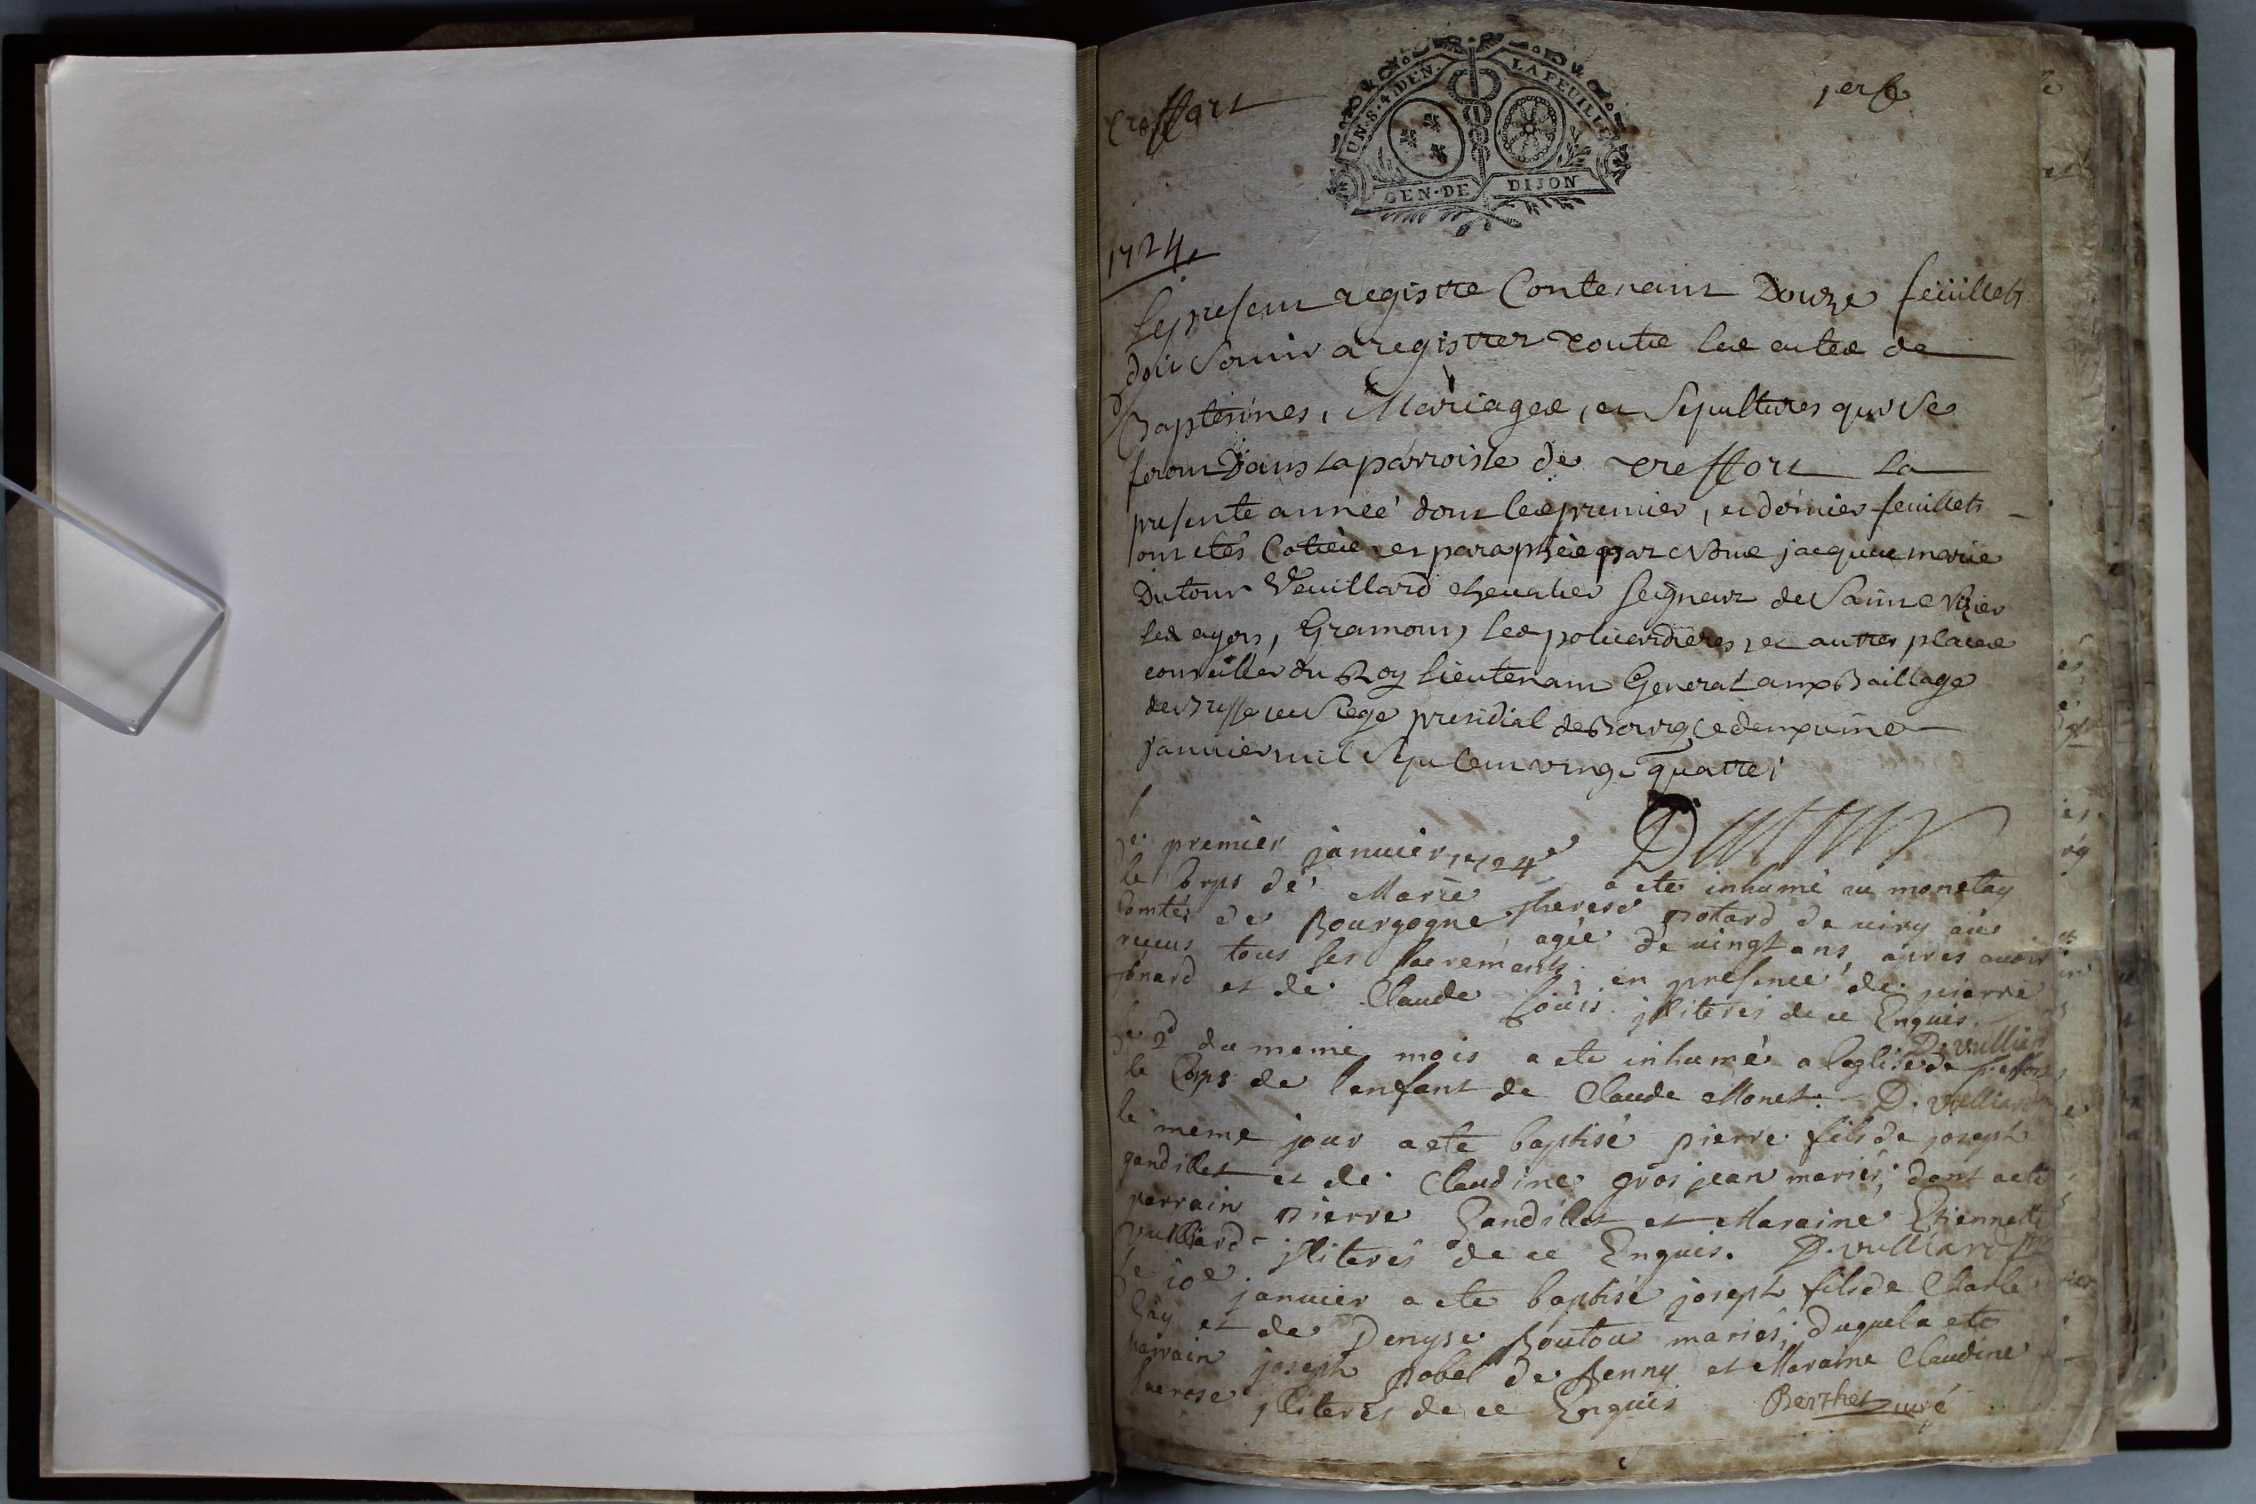 Treffort
1er fe
UN.S.4.DEN. LA FEUILLE
GEN.DE DIJON
1724
Le present registre Contenant Douze feüillets
doit servir a registrer toutte les actes de
Baptesmes, Mariages, et Sepultures qui se
feront Dans la parroisse de Treffort La
presente année dont les premier, et dernier feuillets
ont etés Cottées et paraphées par Nous jacques marie
Dutour Veuillard chevalier seigneur de Sainct
les ayon, Gramont, les et autres places
conseiller du Roy Lieutenant General aux Baillage
de Bresse et Siege presidial de Bourg ce
janvier mil sept cent vingt quatre;
Dutour
Le premier janvier 1724 a ete inhumé au monetay
le Corps de Marie Therese potard de viry
Comté de Bourgogne agée de vingt ans, apres avoir
reçus tous les sacrements, en presence de pierre
jonard et de Claude Louis illiterés de ce Enquis.
D. vulliard
Le 2d du meme mois a ete inhumé a leglise de Treffort
le Corps de lenfant de Claude Monet. D. vulliard
le meme jour a ete baptisé pierre fils de joseph
gandillet et de Claudine grosjean mariés, dont a ete
parrain pierre Gandillet et Maraine Etiennette
vulliard illiterés de ce Enquis. D. vulliard
Le 10e janvier a ete baptisé joseph fils de Charle
et de Denyse Boutou mariés; duquel a ete
parrain joseph pobel de Jenny et Maraine Claudine
lacrose illiterés de ce Enquis Berthet curé